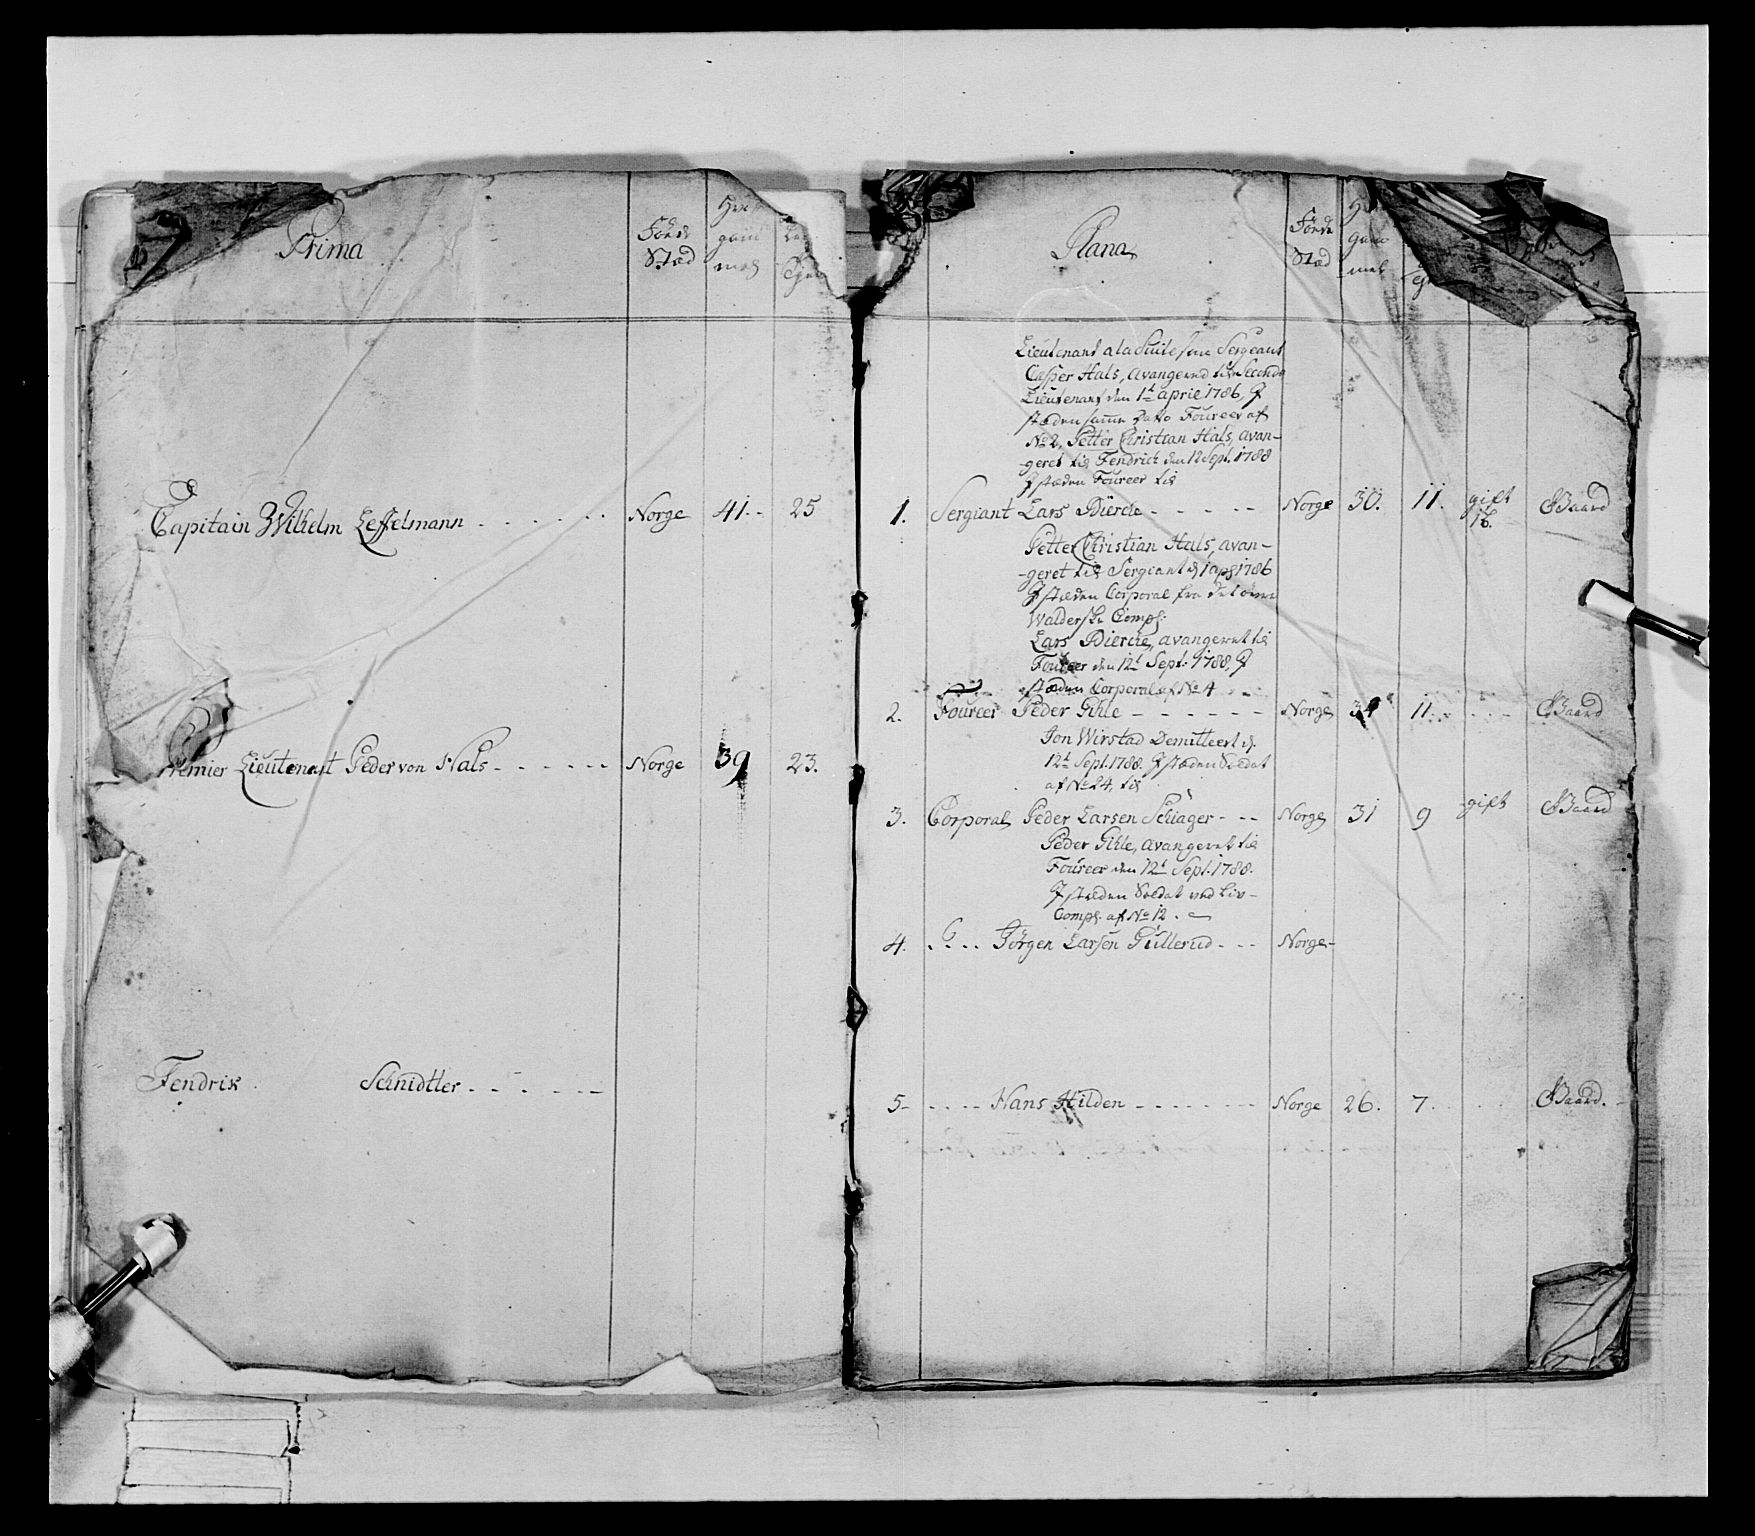 Prima
Føde Stæd
gam mel
Capitain Wilhelm Leffelmann Norge 41 25
Premier Lieutenant Peder von Hals Norge 39 23.
Fendrix Schnidtler
Plana
Føde Stæd
gam mel
Lieutenant a la Suite som Sergeant
Casper Hals, avangered til Seconde
Lieutenant den 1te aprie 1786, J
stæden samme Dato Foureer af
No 2, Petter Christian Hals, avan-
geret til Fendrich den 12 Sept. 1788
J stæden Foureer til
1. Sergiant Lars Bierche Norge 30. 11. gift 1 S. Gaard
Petter Christian Hals, avan-
-geret til Sergiant d. 1 apl 1786
J stæden Corporal fra det
Walderske Comp:
Lars Bierche, avangeret til
Foureer den 12t Sept: 1788, J
stæden Corporal af No 4
2. Foureer Peder Gihle Norge 34 11. Gaard
Jon Wirstad Demitteert d.
12t Sept. 1788. J stæden Soldat
af No 24, til
3. Corporal Peder Larsen Schiager Norge 31 9 gift Gaard
Peder Gihle, avangeret til
Foureer den 12t Sept. 1788.
J stæden Soldat ved Liv-
Comp: af No 12.
4. Jørgen Larsen Gullerud Norge
5 Hans Hilden Norge 26. 7. Gaard.